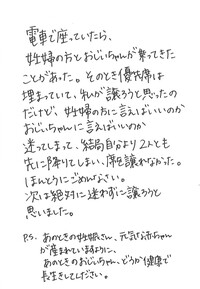 電車で座っていたら、
妊婦の方とおじいちゃんが乗ってきた
ことがあった。そのとき優先席は
埋まっていて、私が譲ろうと思ったの
だけど、妊婦の方に言えばいいのか
おじいちゃんに言えばいいのか
迷ってしまって、結局自分より2人とも
先に降りてしまい、席を譲れなかった。
ほんとうにごめんなさい。
次は絶対に迷わずに譲ろうと
思いました。
P.S. あのときの妊婦さん、元気な赤ちゃん
が産まれていますように。
あのときのおじいちゃん、どうか健康で
長生きしてください。